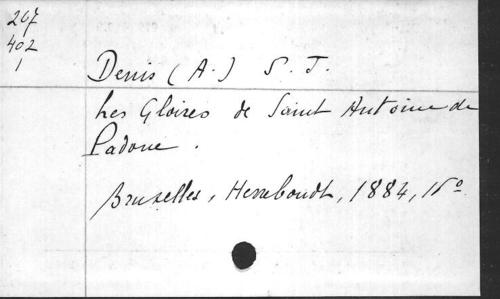 207
402
1
Denis (A.) S. J.
Les Gloires de Saint Antoine de
Padoue.
Bruxelles, Herreboudt, 1884, 16º